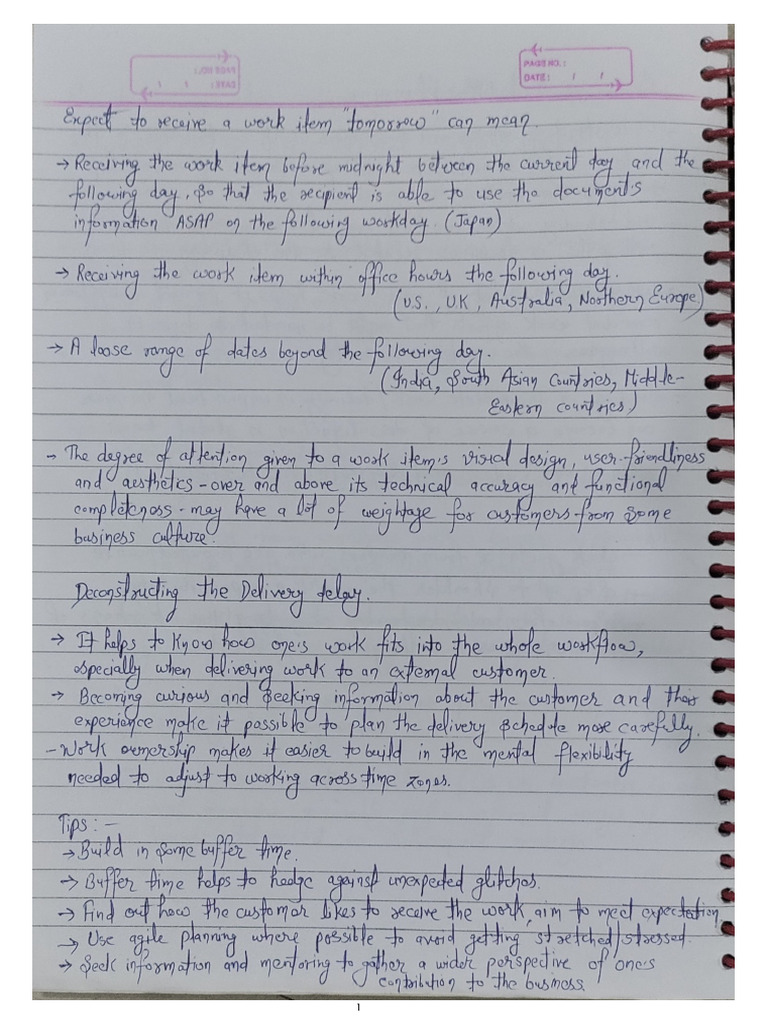 PAGE NO.:
DATE: / /
Expect to receive a work item "tomorrow" can mean.
→ Receiving the work item before midnight between the current day and the
following day, so that the recipient is able to use the document's
information ASAP on the following workday. (Japan)
→ Receiving the work item within office hours the following day.
(U.S., U.K, Australia, Northern Europe)
→ A loose range of dates beyond the following day.
(India, South Asian Countries, Middle-
Eastern countries)
→ The degree of attention given to a work item's visual design, user-friendliness
and aesthetics - over and above its technical accuracy and functional
completeness - may have a lot of weightage for customers from some
business culture.
Deconstructing the Delivery delay.
→ It helps to know how one's work fits into the whole workflow,
especially when delivering work to an external customer.
→ Becoming curious and seeking information about the customer and their
experience make it possible to plan the delivery schedule more carefully.
- Work ownership makes it easier to build in the mental flexibility
needed to adjust to working across time zones.
Tips: -
→ Build in some buffer time.
→ Buffer time helps to hedge against unexpected glitches.
→ Find out how the customer likes to receive the work, aim to meet expectation
→ Use agile planning where possible to avoid getting stretched/stressed.
→ Seek information and mentoring to gather a wider perspective of one's
contribution to the business.
1